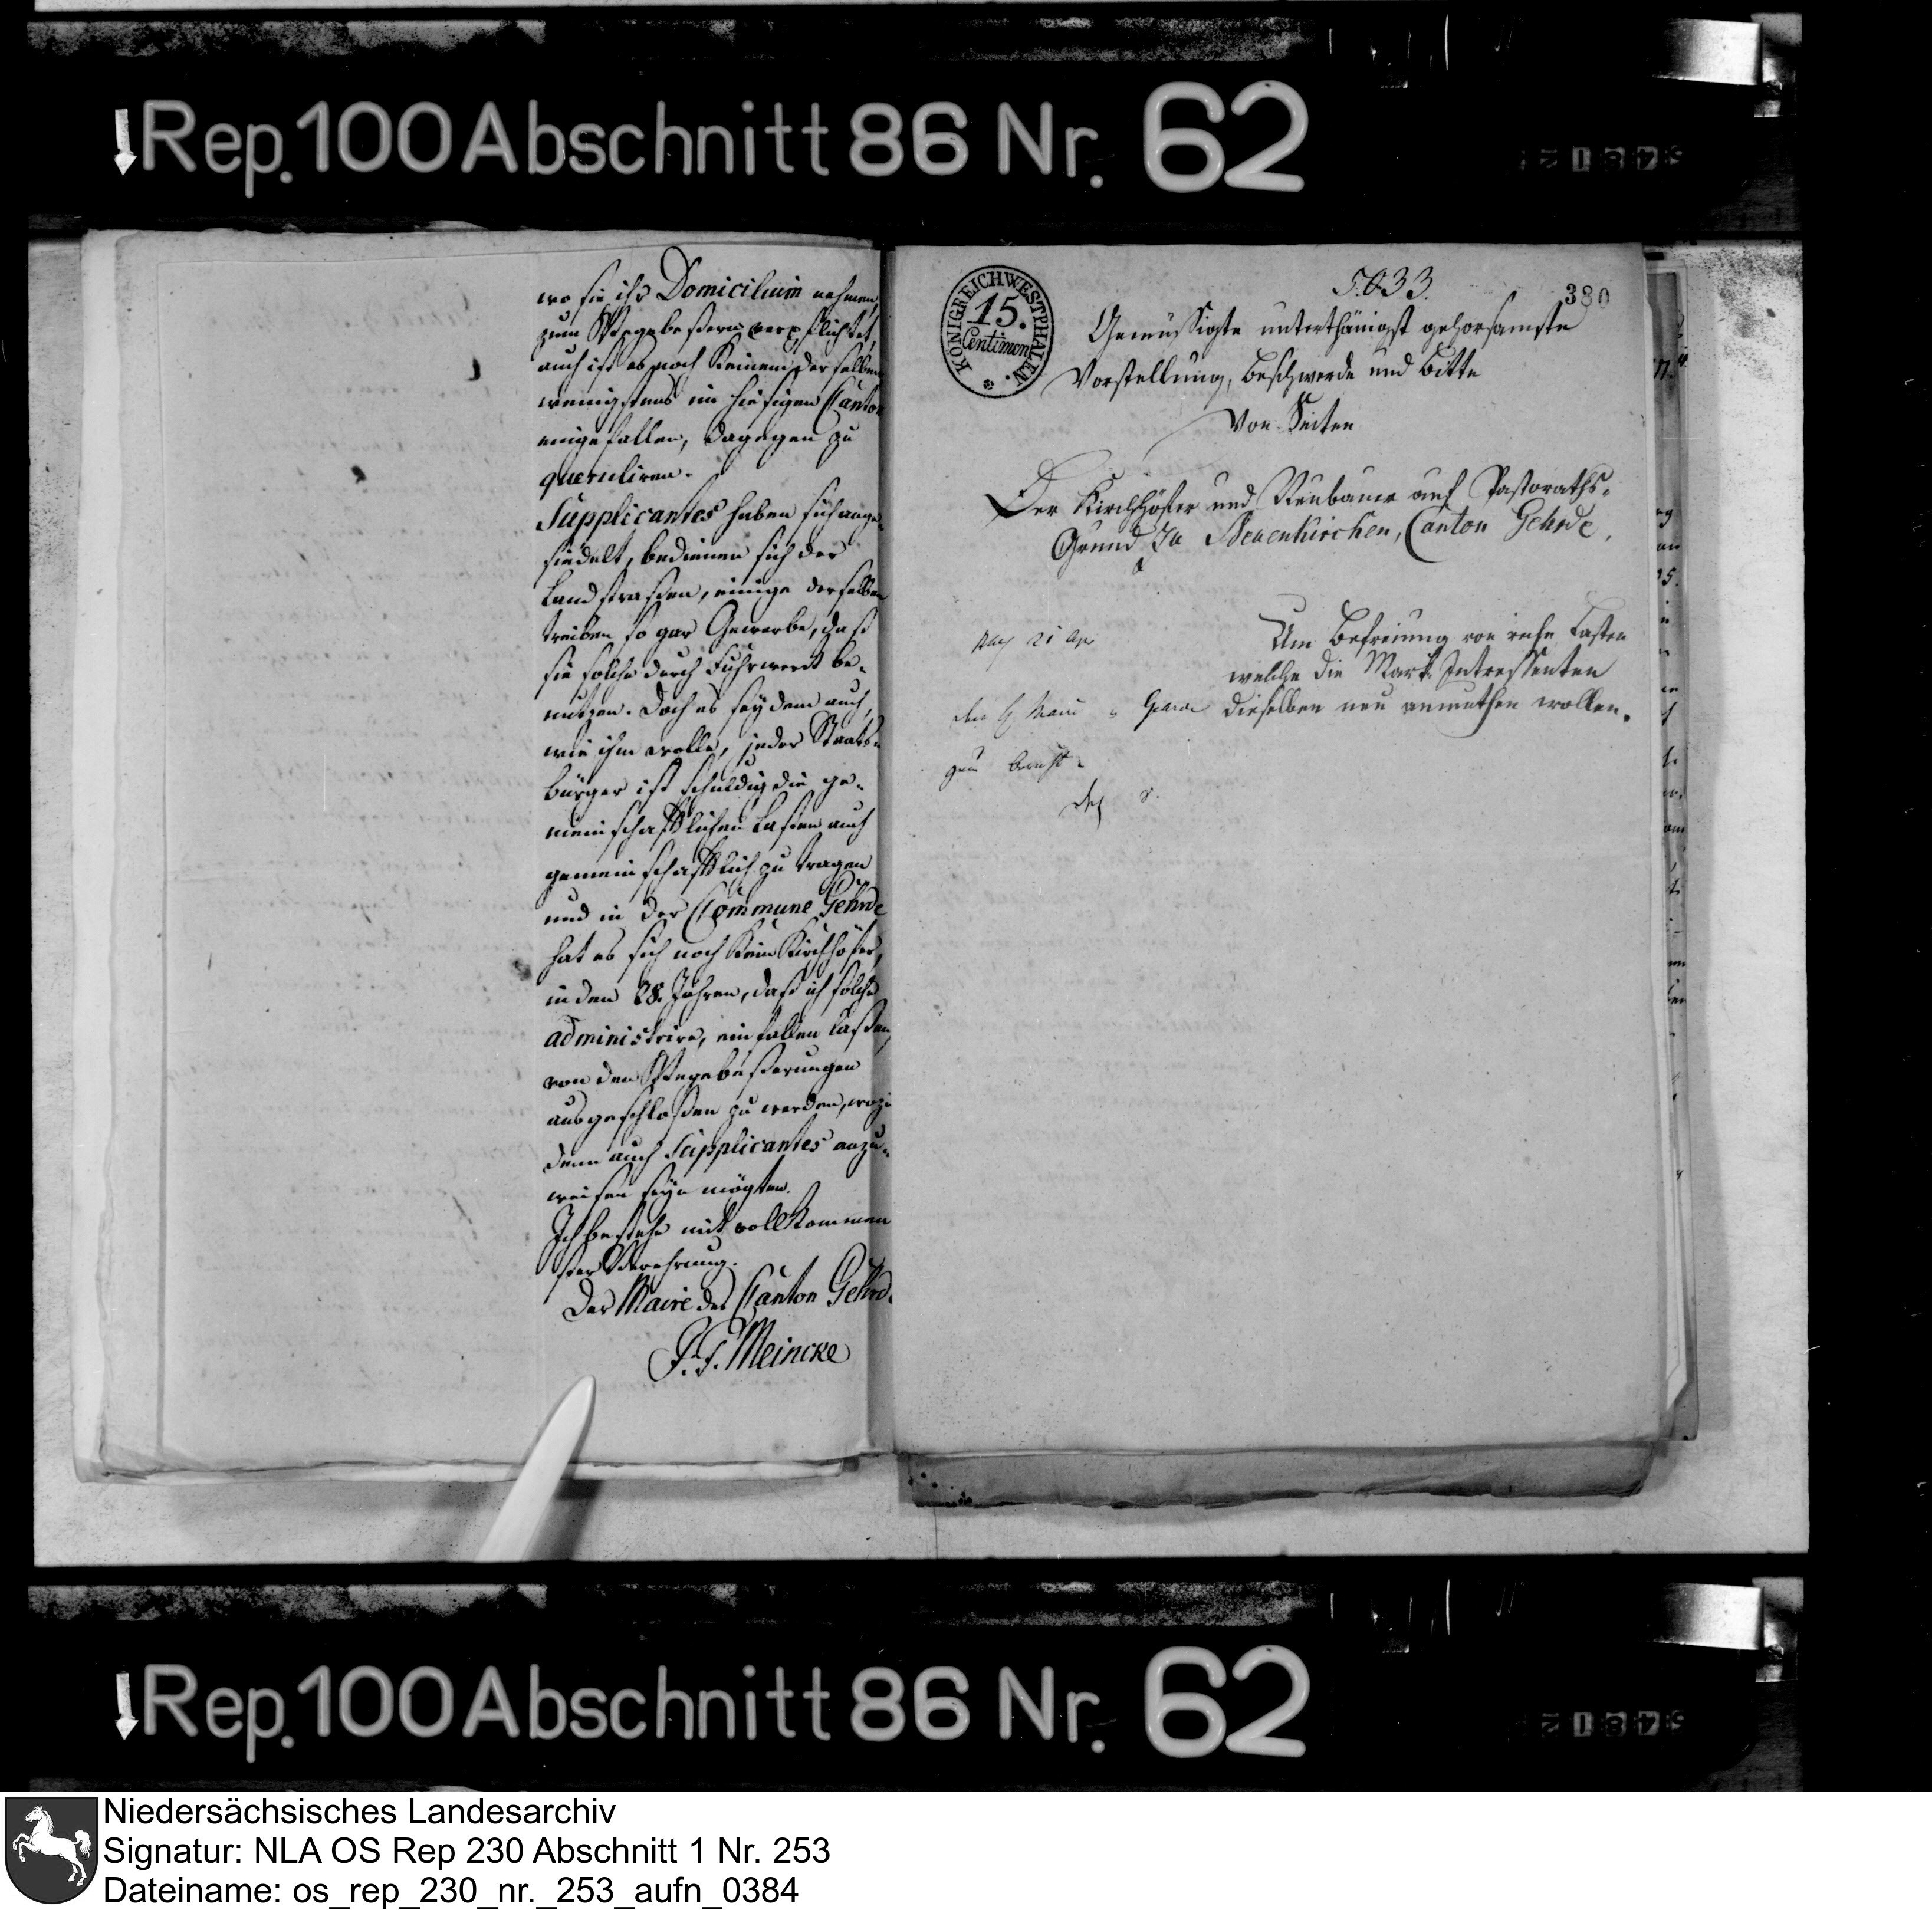 Rep. 100 Abschnitt 86 Nr. 62
wo sie ihr Domicilium nehmen,
zum Wegebeßern verpflichtet,
auch ist es noch keinem derselben
wenigstens im hiesigen Canton
eingefallen, dagegen zu
queruliren.
Supplicantes haben sich ange-
siedelt, bedienen sich der
Landstraßen, einige derselben
treiben so gar Gewerbe, daß
sie solche durch Fuhrwerk be-
nutzen. Doch es sey dem auch,
wie ihm wolle, jeder Staats-
bürger ist schuldig die ge-
meinschafftlichen Lasten auch
gemeinschafftlich zu tragen
und in der Commune Gehrde
hat es sich noch kein Kirchhöfer,
in den 28. Jahren, daß ich solche
administrire, einfallen laßen,
von den Wegebeßerungen
ausgeschloßen zu werden, wozu
denn auch Supplicantes anzu-
weisen seyn mögten.
Ich bestehe mit vollkommen
ster Verehrung.
Der Maire des Canton Gehrde
F. F. Meincke
KÖNIGREICH WESTPHALEN.
15.
Centimen
5033.
380
Gemüssigte unterthänigst gehorsamste
Vorstellung, Beschwerde und Bitte
von Seiten
Der Kirchhöfer und Neubauer auf Pastoraths-
Grund zu Neuenkirchen, Canton Gehrde.
Um Befreiung von Lasten
welche die Mark Intressenten
denselben neu anmuthen wollen.
den H Maire Gehrde
zum Bericht
Rep. 100 Abschnitt 86 Nr. 62
Niedersächsisches Landesarchiv
Signatur: NLA OS Rep 230 Abschnitt 1 Nr. 253
Dateiname: os_rep_230_nr._253_aufn_0384